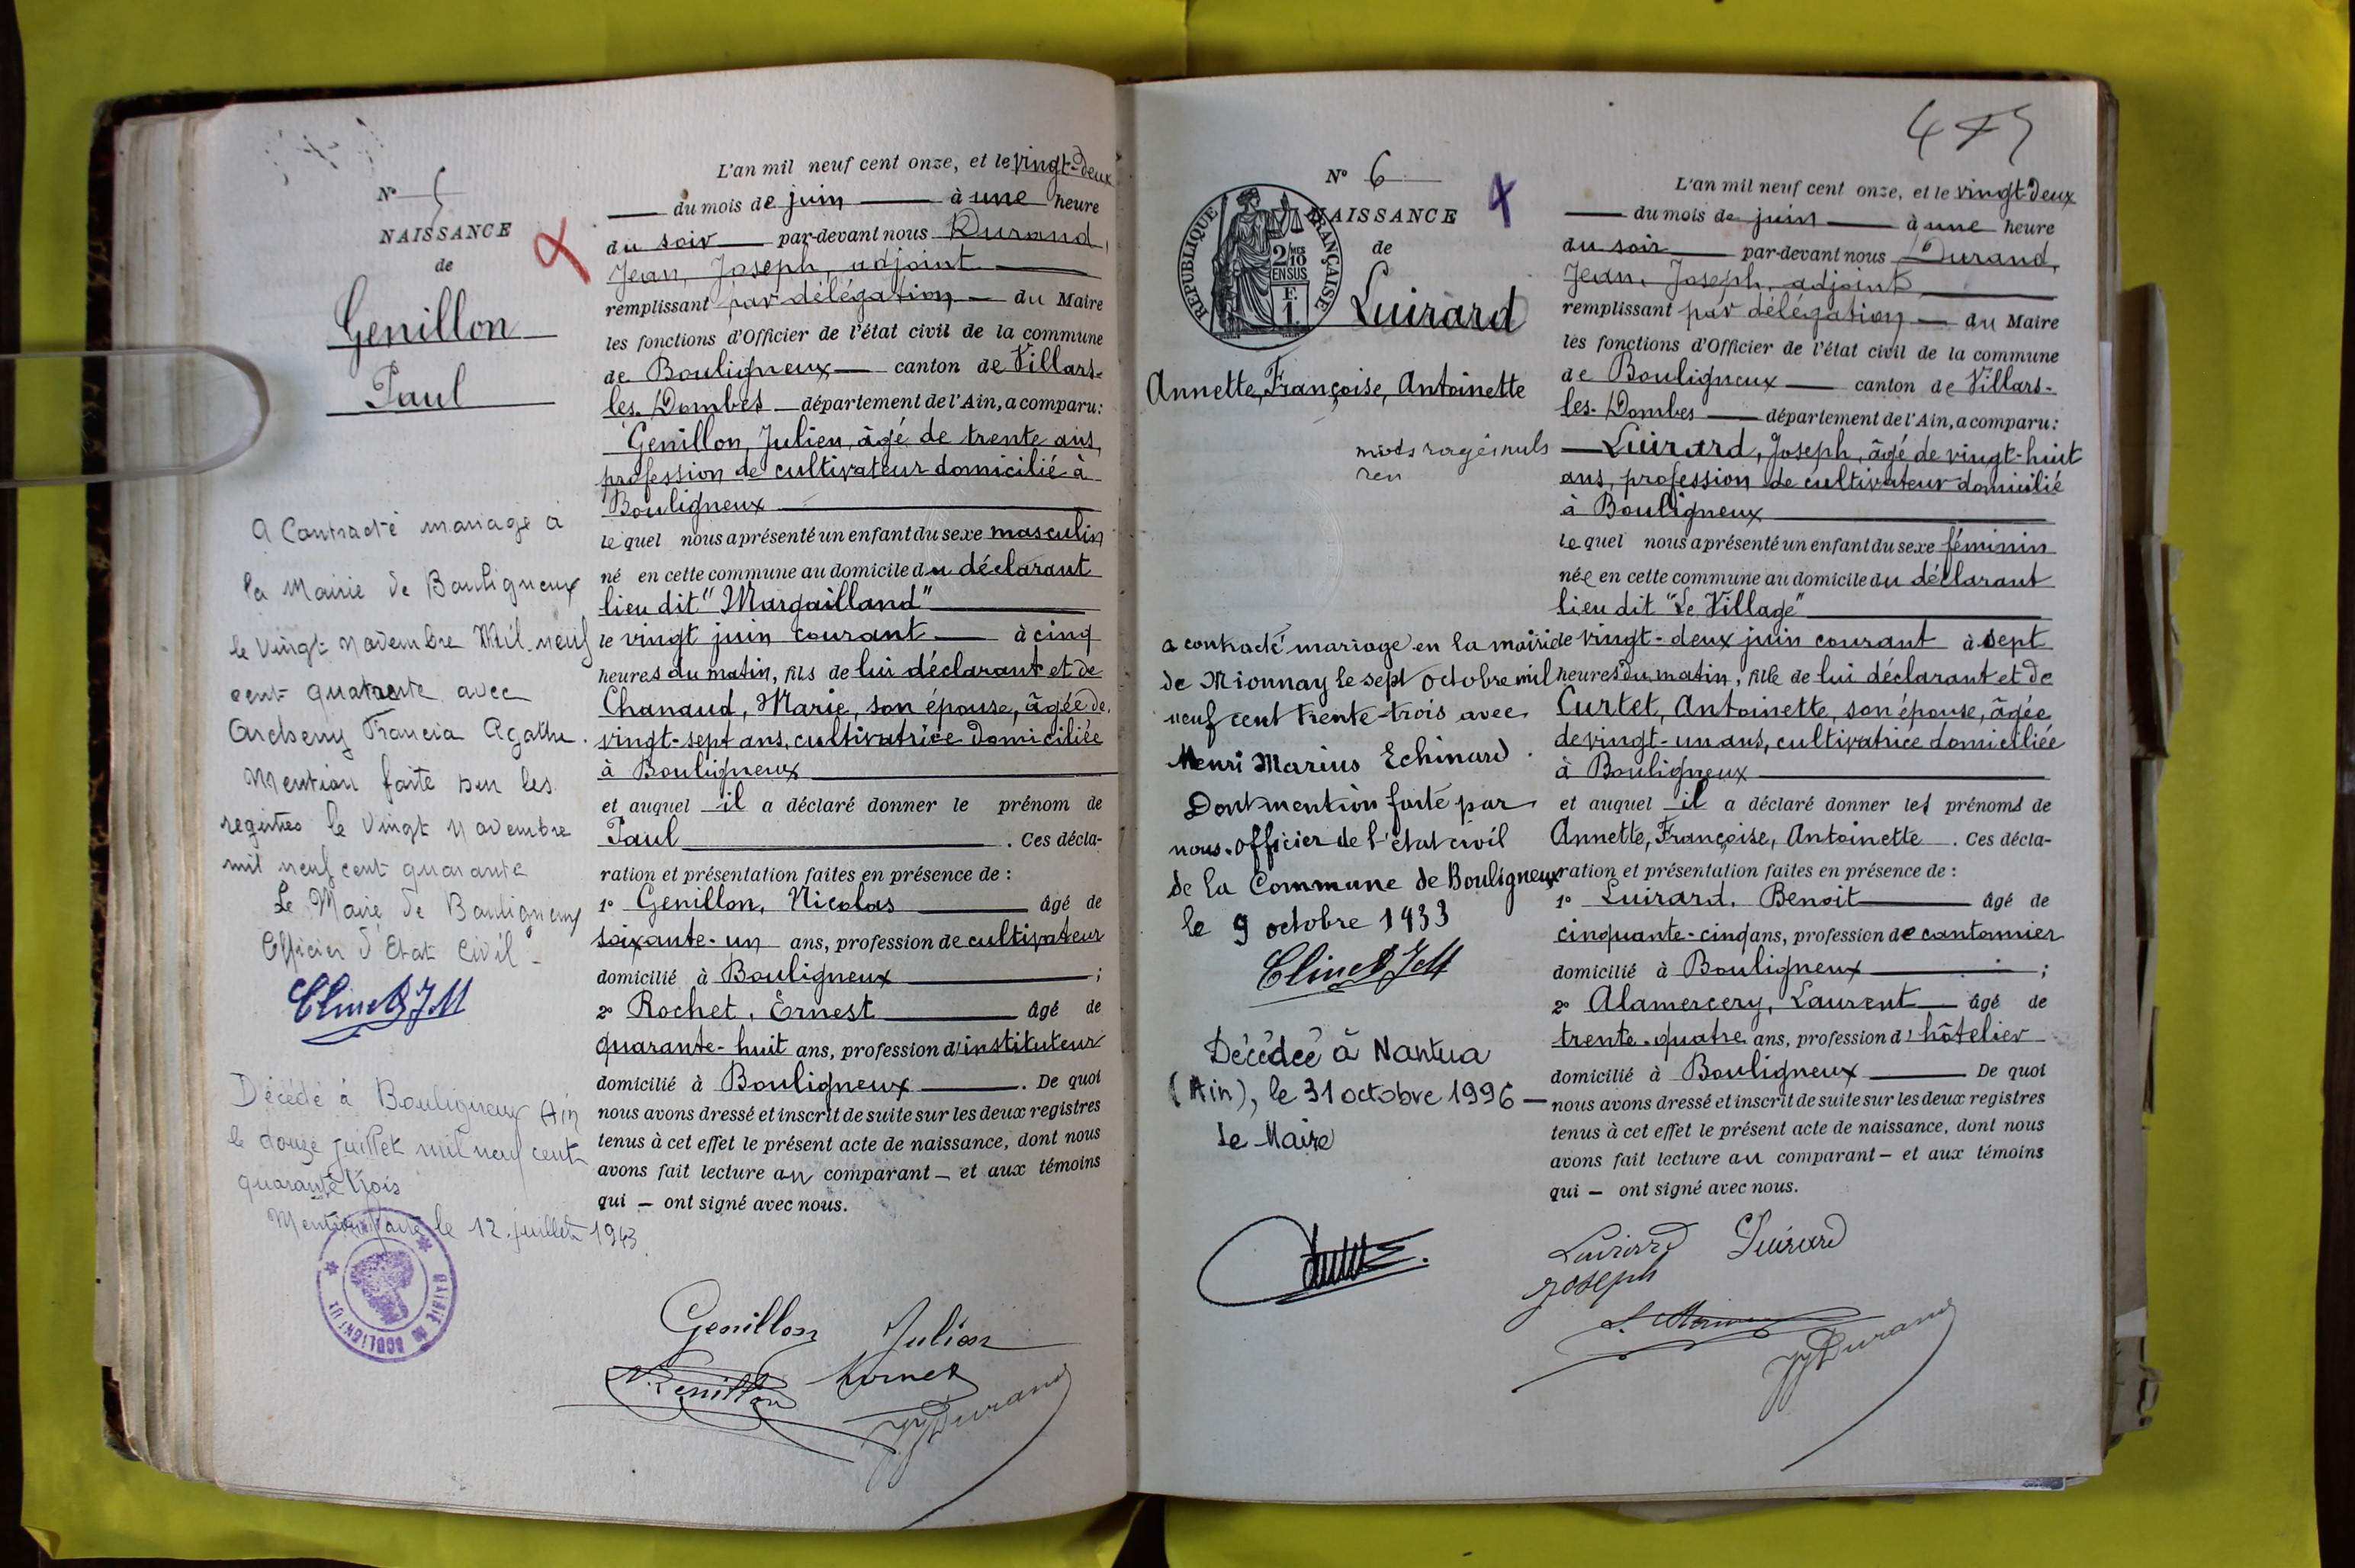 N° 5
NAISSANCE
de
Genillon
Paul
A Contracté mariage à
la Mairie de Bouligneux
le Vingt Novembre Mil neuf
cent quarante avec
Francia Agathe.
Mention faite sur les
registres le Vingt Novembre
mil neuf cent quarante
Le Maire de Bouligneux
Officier d'Etat Civil -
Décédé à Bouligneux Ain
le douze juillet mil neuf cent
quarante trois
Mention faite le 12 juillet 1943.
MAIRIE DE BOULIGNEUX
L'an mil neuf cent onze, et le vingt-deux
du mois de juin à une heure
du soir par-devant nous Durand,
Jean, Joseph, adjoint
remplissant par délégation du Maire
les fonctions d'Officier de l'état civil de la commune
de Bouligneux canton de Villars-
les-Dombes département de l'Ain, a comparu:
Genillon, Julien, âgé de trente ans,
profession de cultivateur domicilié à
Bouligneux
lequel nous a présenté un enfant du sexe masculin
né en cette commune au domicile du déclarant
lieu dit "Margailland"
le vingt juin courant à cinq
heures du matin, fils de lui déclarant et de
Chanaud, Marie, son épouse, âgée de
vingt-sept ans, cultivatrice domiciliée
à Bouligneux
et auquel il a déclaré donner le prénom de
Paul . Ces décla-
ration et présentation faites en présence de :
1° Genillon, Nicolas âgé de
soixante-un ans, profession de cultivateur
domicilié à Bouligneux ;
2° Rochet, Ernest âgé de
quarante-huit ans, profession d'instituteur
domicilié à Bouligneux . De quoi
nous avons dressé et inscrit de suite sur les deux registres
tenus à cet effet le présent acte de naissance, dont nous
avons fait lecture au comparant – et aux témoins
qui – ont signé avec nous.
Genillon Julien
N. Genillon
JJ Durand
475
N° 6
NAISSANCE
de
REPUBLIQUE FRANÇAISE
2/10
EN SUS
F.
1.
Luirard
Annette, Françoise, Antoinette
mots rayés nuls
a contracté mariage en la mairie
de Mionnay le sept octobre mil
neuf cent trente-trois avec
Henri Marius Echinard.
Dont mention faite par
nous officier de l'état civil
de la Commune de Bouligneux
le 9 octobre 1933
Décédée à Nantua
(Ain), le 31 octobre 1996 —
Le Maire
L'an mil neuf cent onze, et le vingt-deux
du mois de juin à une heure
du soir par-devant nous Durand,
Jean, Joseph, adjoint
remplissant par délégation du Maire
les fonctions d'Officier de l'état civil de la commune
de Bouligneux canton de Villars-
les-Dombes département de l'Ain, a comparu:
Luirard, Joseph, âgé de vingt-huit
ans, profession de cultivateur domicilié
à Bouligneux
lequel nous a présenté un enfant du sexe féminin
née en cette commune au domicile du déclarant
lieu dit "Le Village"
le vingt-deux juin courant à sept
heures du matin, fille de lui déclarant et de
Curtet, Antoinette, son épouse, âgée
de vingt-un ans, cultivatrice domiciliée
à Bouligneux
et auquel il a déclaré donner les prénoms de
Annette, Françoise, Antoinette . Ces décla-
ration et présentation faites en présence de :
1° Luirard, Benoit âgé de
cinquante-cinq ans, profession de cantonnier
domicilié à Bouligneux ;
2° Alamercery, Laurent âgé de
trente-quatre ans, profession d'hôtelier
domicilié à Bouligneux De quoi
nous avons dressé et inscrit de suite sur les deux registres
tenus à cet effet le présent acte de naissance, dont nous
avons fait lecture au comparant – et aux témoins
qui – ont signé avec nous.
Luirard Luirard
Joseph
JJ Durand